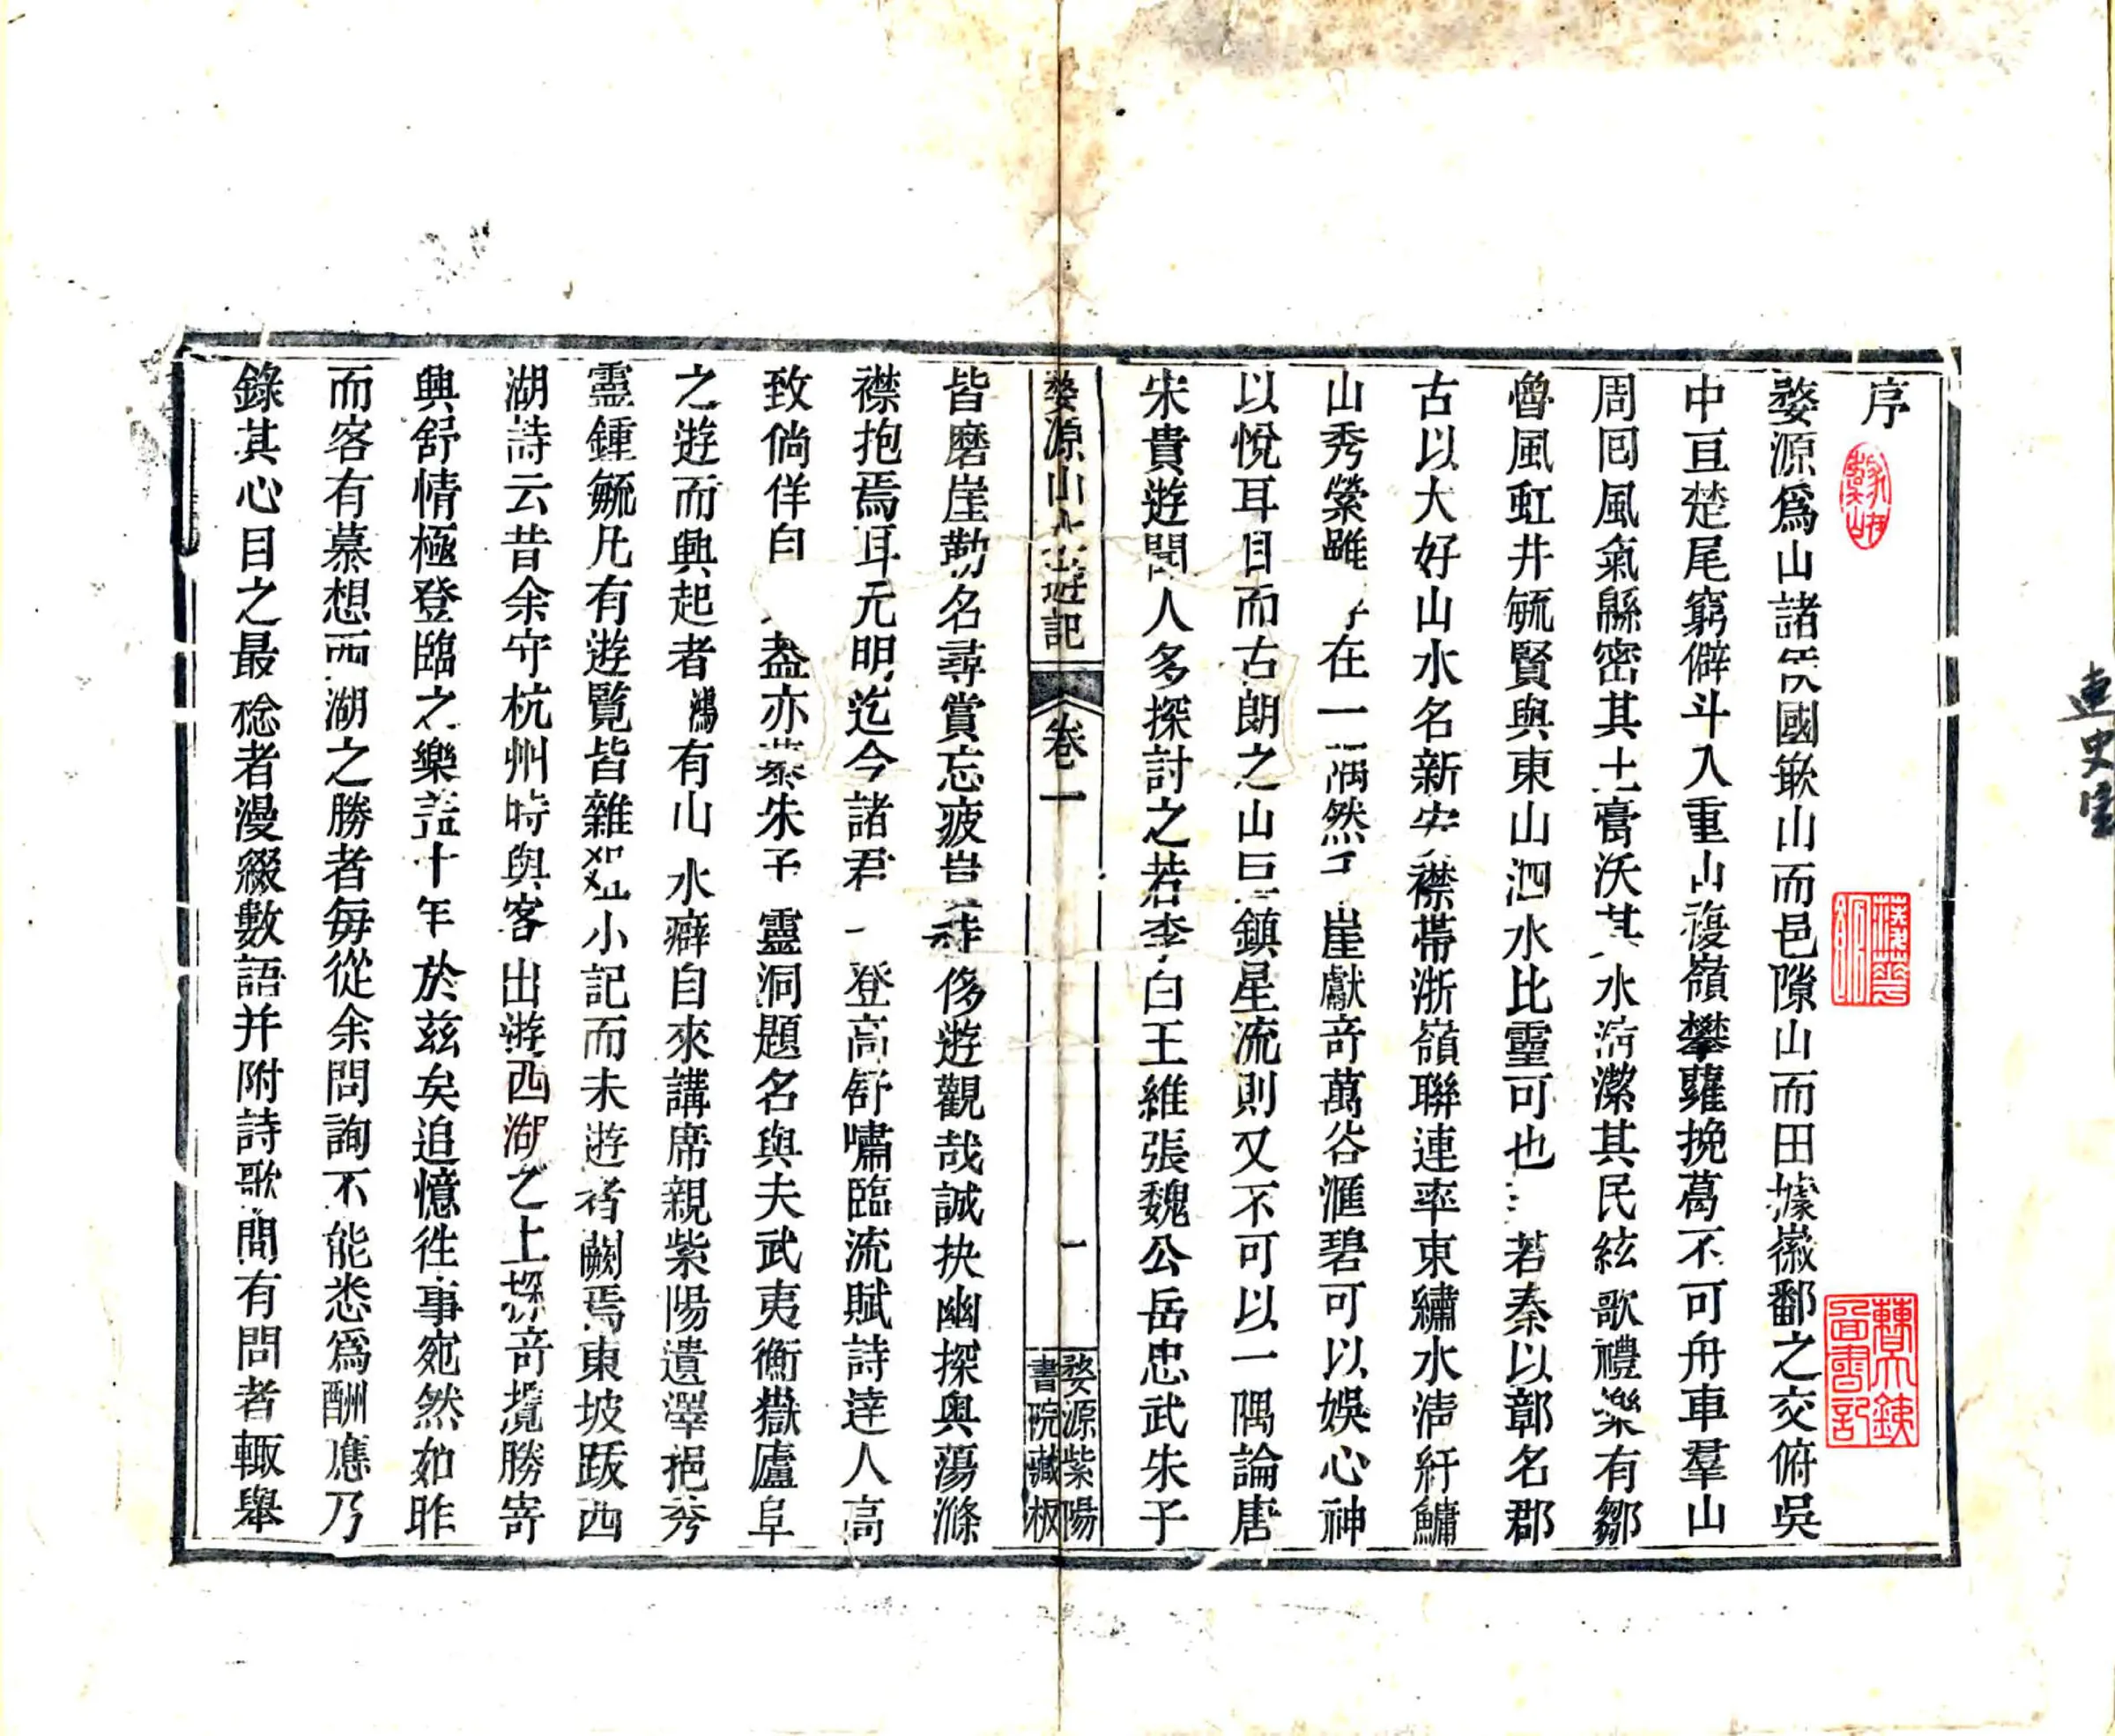 序
婺源爲山諸侯國歙山而邑隙山而田據徽鄱之交俯吳
中亘楚尾窮僻斗入重山複嶺攀蘿挽葛不可舟車羣山
周囘風氣緜密其土膏沃其水清潔其民絃歌禮樂有鄒
魯風虹井毓賢與東山泗水比靈可也 若秦以鄣名郡
古以大好山水名新安 襟帶浙嶺聯連率東繡水淸紆鱅
山秀縈雖 在一隅然 崖獻奇萬谷滙碧可以娛心神
以悅耳目而古朗之山巨鎭星流則又不可以一隅論唐
宋貴遊聞人多探討之若李白王維張魏公岳忠武朱子
婺源山水遊記 卷一 一 婺源紫陽書院藏板
皆磨崖勒名尋賞忘疲豈 侈遊觀哉誠抉幽探奥蕩滌
襟抱焉耳元明迄今諸君 登高舒嘯臨流賦詩達人高
致倘佯自 盖亦慕朱子靈洞題名與夫武夷衡嶽廬阜
之遊而興起者鴻有山水癖自來講席親紫陽遺澤挹秀
靈鍾毓凡有遊覽皆雜 小記而未遊者闕焉東坡跋西
湖詩云昔余守杭州時與客出遊西湖之上探奇攬勝寄
興舒情極登臨之樂葢十年於兹矣追憶徃事宛然如昨
而客有慕想西湖之勝者每從余問詢不能悉爲酬應乃
錄其心目之最稔者漫綴數語并附詩歌間有問者輙舉